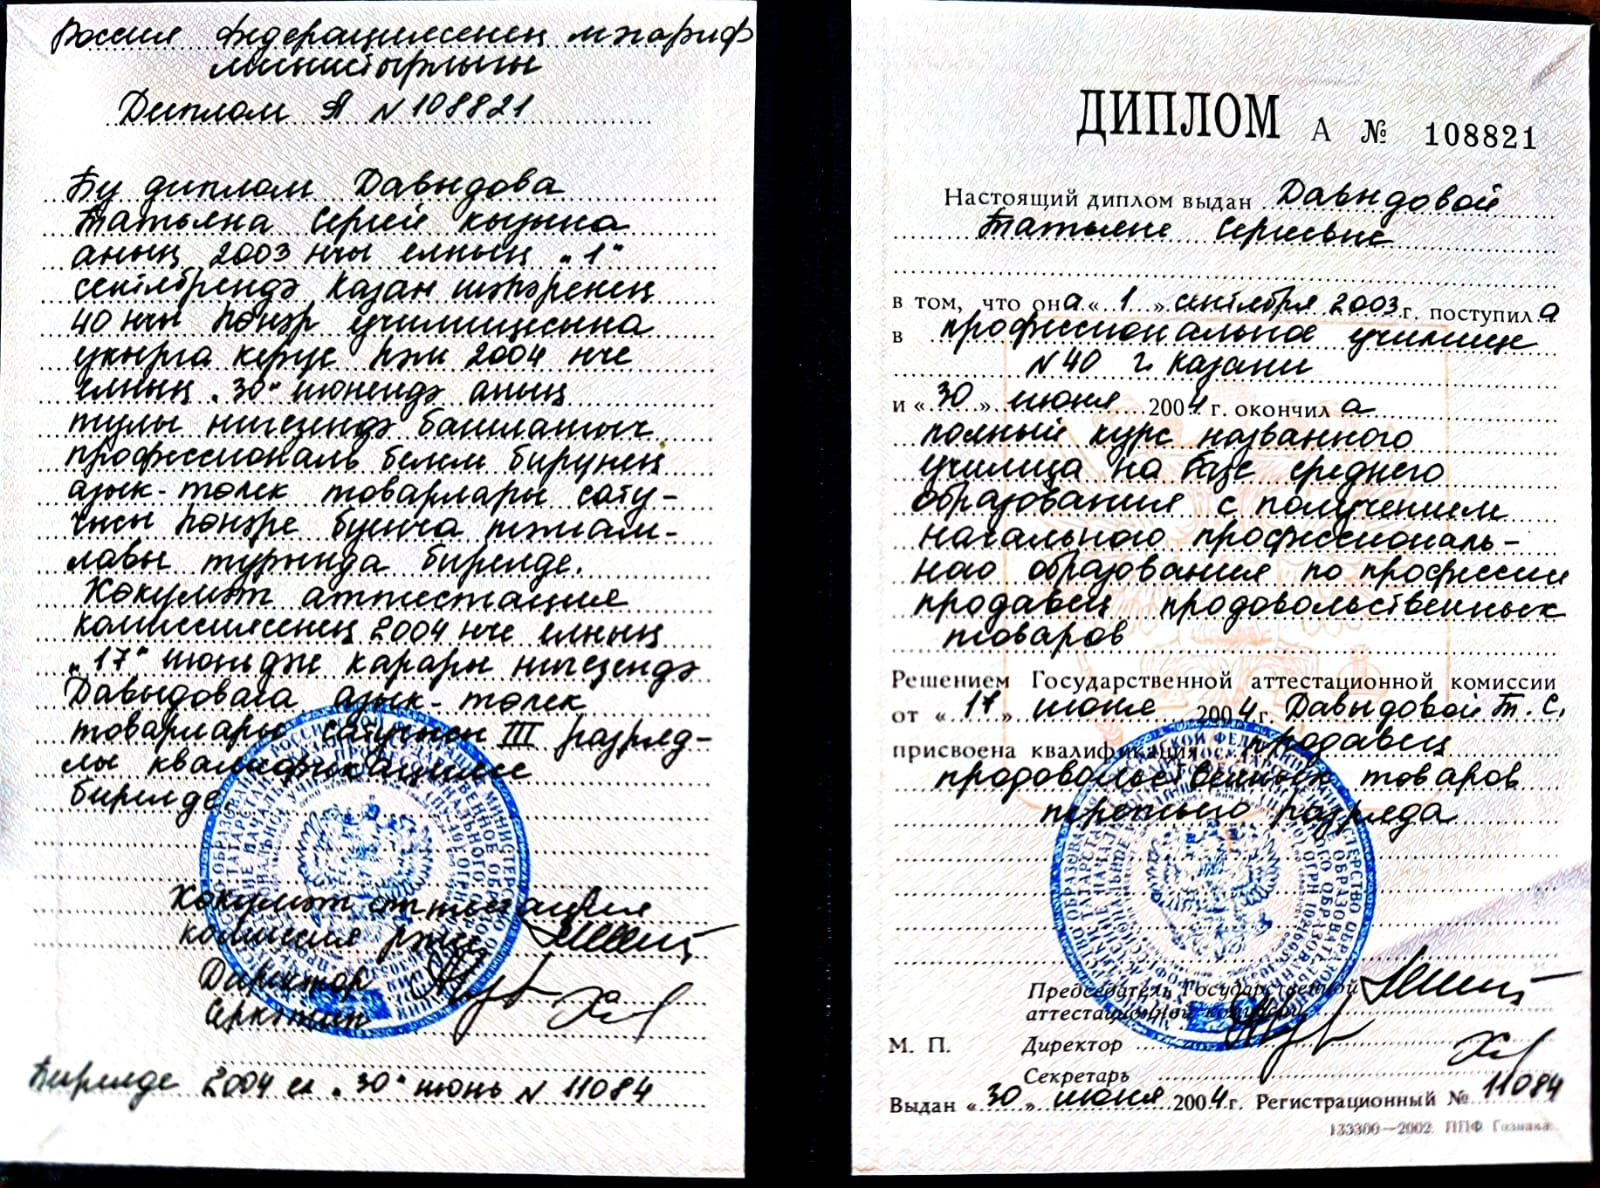 Россия Федерациясенең мәгариф
министрлыгы
Диплом А N 108821
Бу диплом Давыдова
Татьяна Сергей кызына
аның 2003 нчы елның „1“
сентябрендә Казан шәһәренең
40 нчы һөнәр училищесына
укырга керүе һәм 2004 нче
елның „30“ июнендә аның
тулы нигезендә башлангыч
профессиональ белем бирүнең
азык-төлек товарлары сату-
чысы һөнәре буенча тәмам-
лавы турында бирелде.
Хөкүмәт аттестация
комиссиясенең 2004 нче елның
„17“ июньдәге карары нигезендә
Давыдовага азык-төлек
товарлары сатучысы III разряд-
лы квалификациясе
бирелде.
Хөкүмәт аттестация
комиссия рәисе
Директор
Сркәтип
Бирелде 2004 ел „30“ июнь N 11084
ДИПЛОМ А № 108821
Настоящий диплом выдан Давыдовой
Татьяне Сергеевне
в том, что она « 1 » сентября 2003 г. поступила
в профессиональное училище
N40 г. Казани
и « 30 » июня 2004 г. окончила
полный курс названного
училища на базе среднего
образования с получением
начального профессиональ-
ного образования по профессии
продавец продовольственных
товаров
Решением Государственной аттестационной комиссии
от « 17 » июня 2004 г. Давыдовой Т. С.
присвоена квалификация продавец
продовольственных товаров
третьего разряда
Председатель Государственной
аттестационной комиссии
М. П. Директор
Секретарь
Выдан « 30 » июня 2004 г. Регистрационный № 11084
133300—2002. ППФ Гознака.